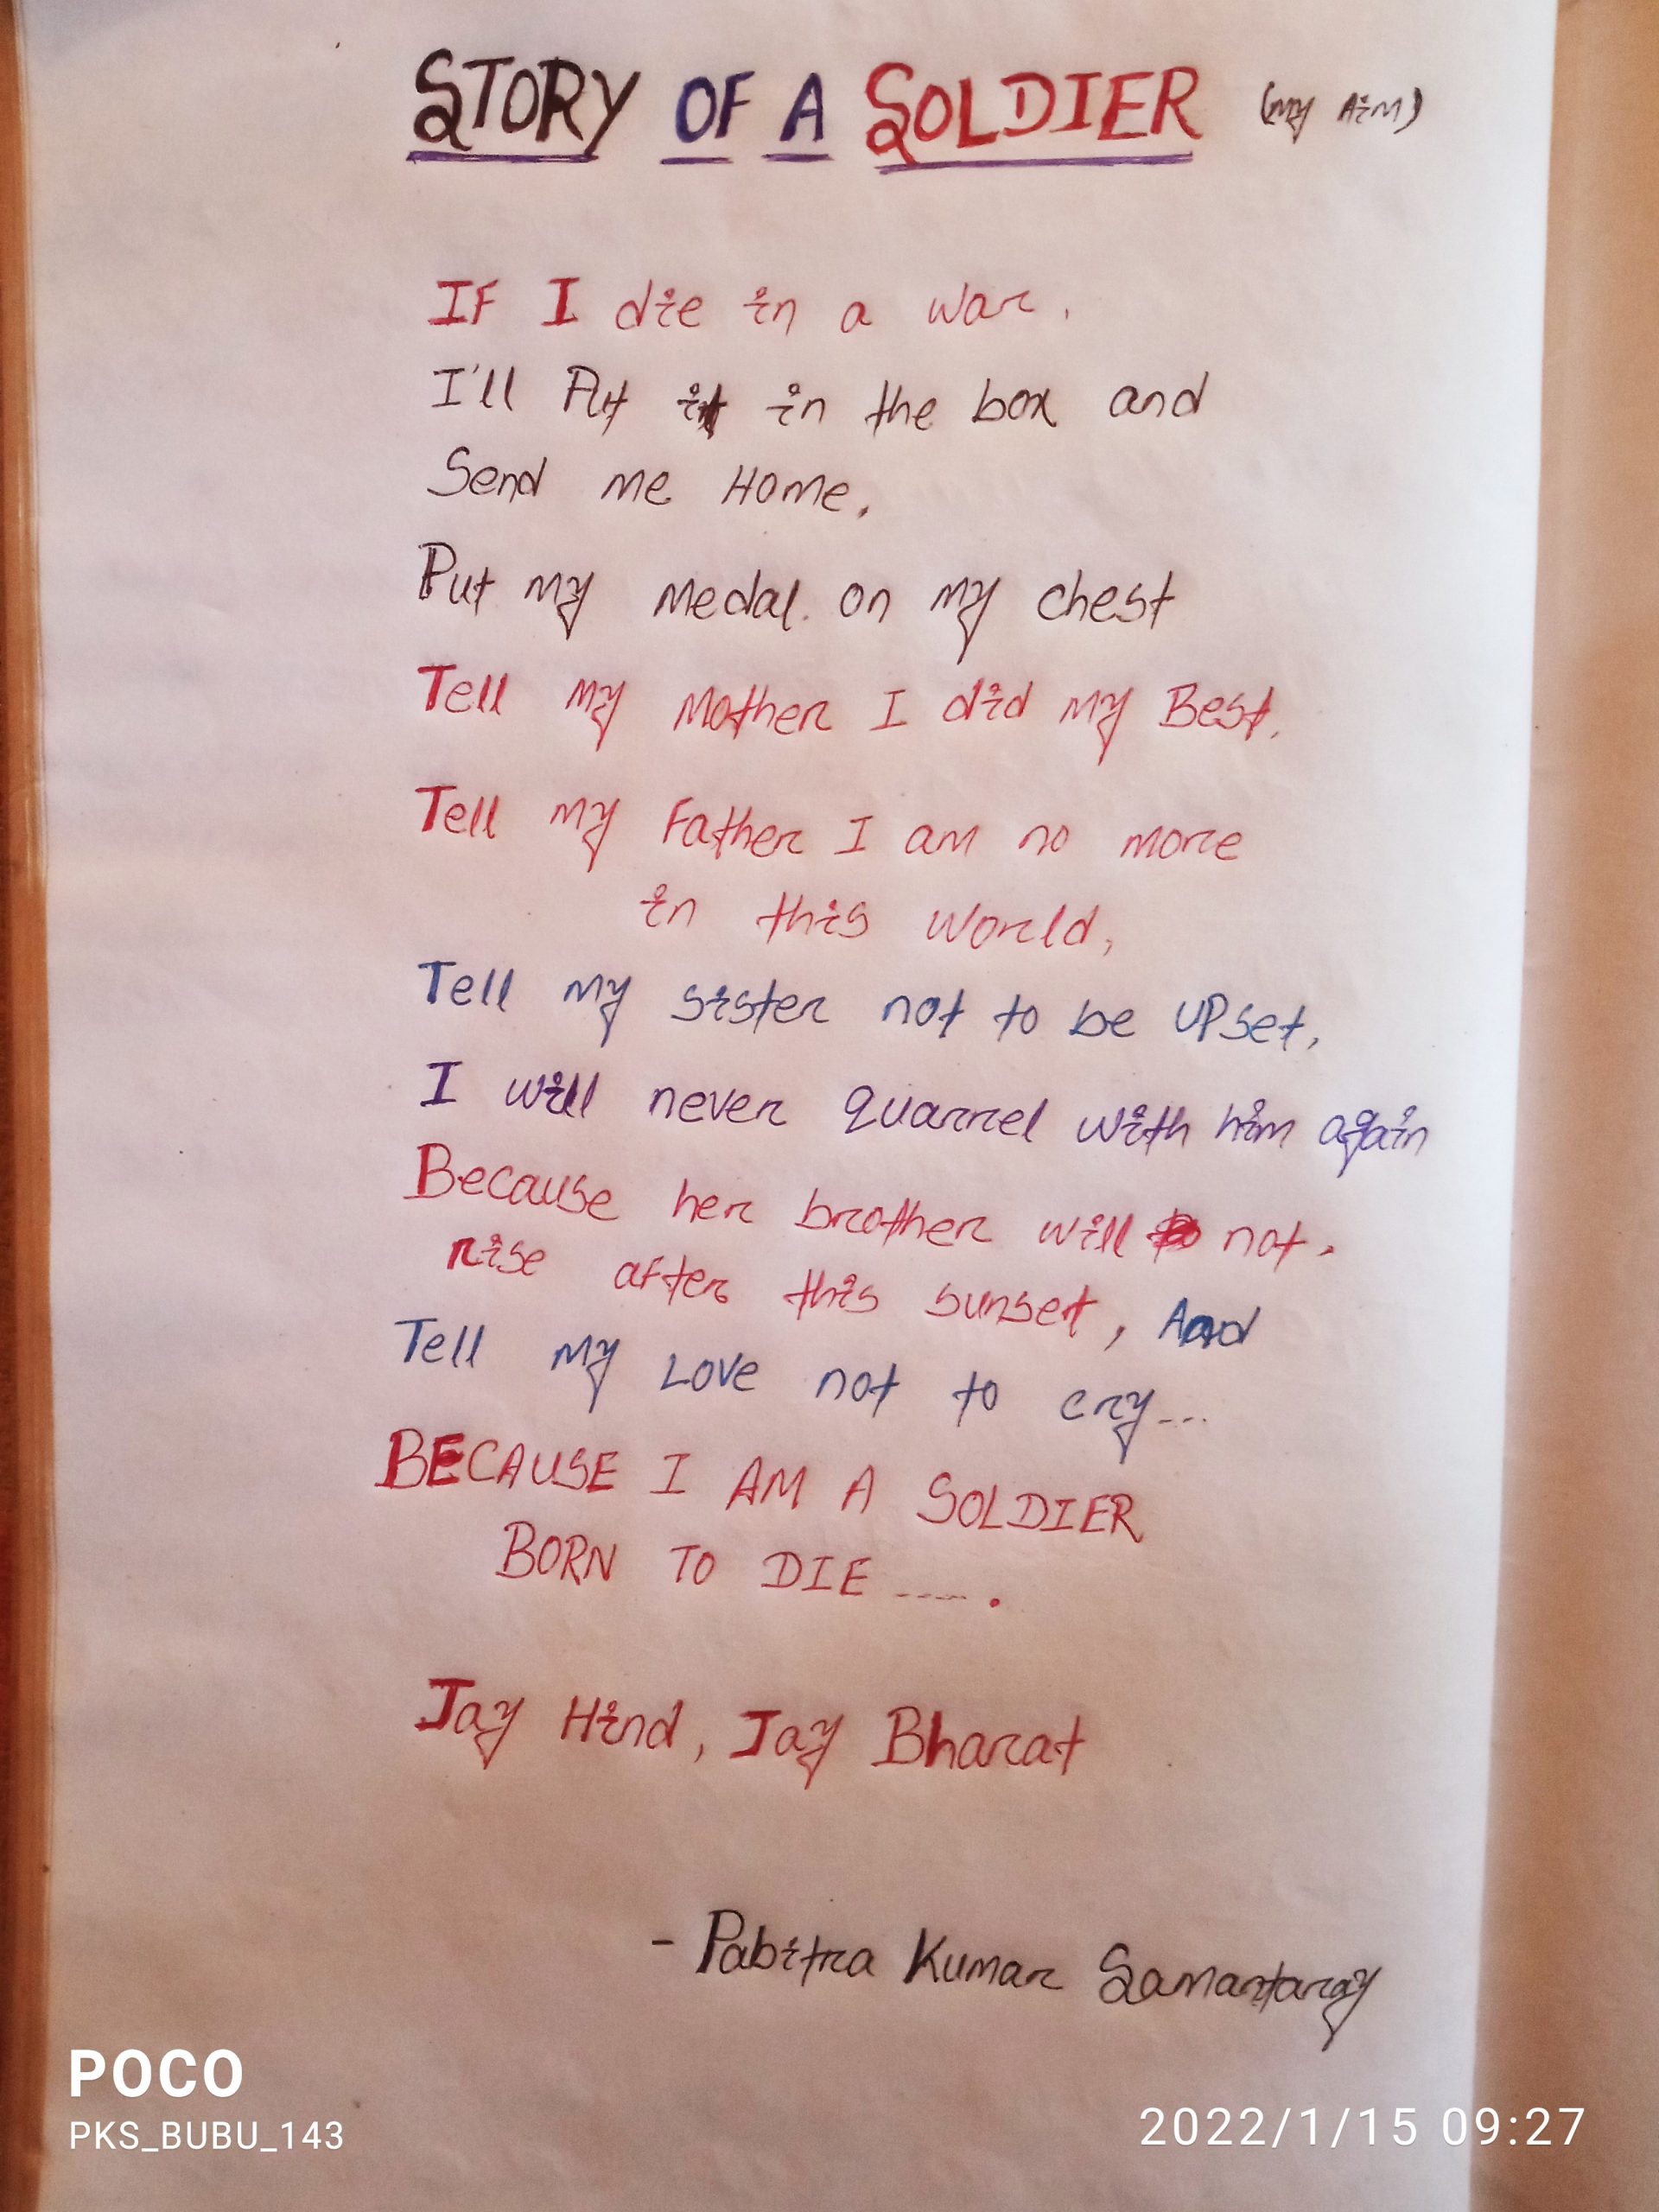 STORY OF A SOLDIER (my AiM)
IF I die in a war.
I'll Put it in the box and
Send me Home.
Put my medal. on my chest
Tell my Mother I did my Best.
Tell my Father I am no more
in this World,
Tell my sister not to be UPset,
I will never quarrel with him again
Because her brother will not.
rise after this sunset, And
Tell my LOVE not to cry...
BECAUSE I AM A SOLDIER
BORN TO DIE .....
Jay Hind, Jay Bharat
- Pabitra Kumar Samantaray
POCO
PKS_BUBU_143
2022/1/15 09:27